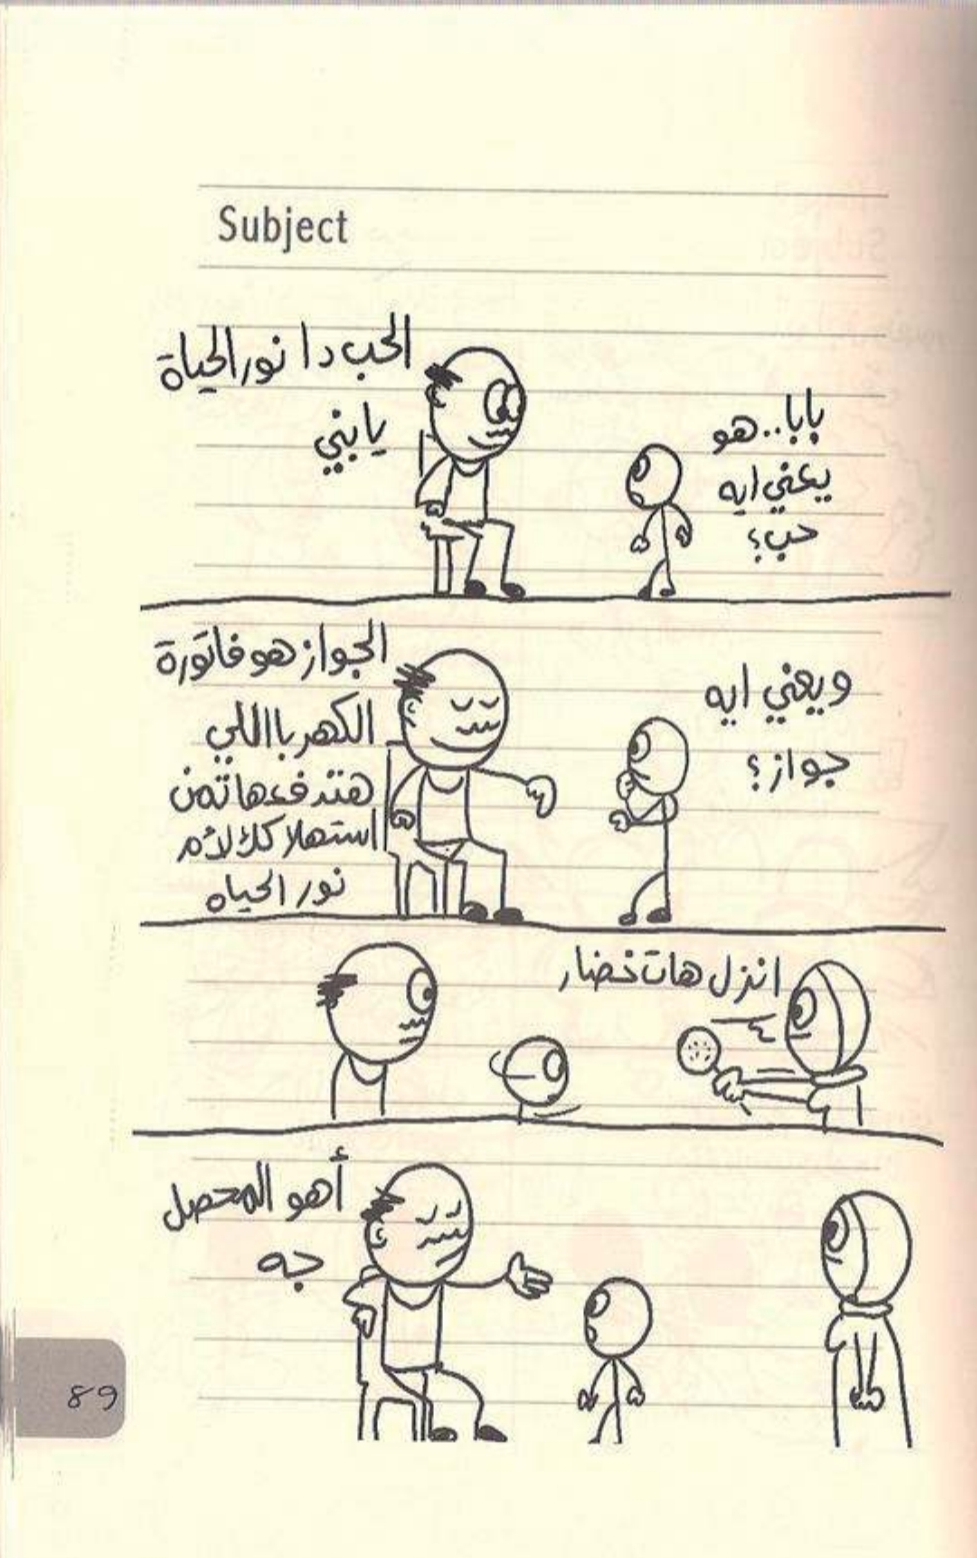 Subject
بابا.. هو
يعني ايه
حب؟
الحب دا نور الحياة
يا بني
ويعني ايه
جواز؟
الجواز هو فاتورة
الكهربا اللي
هتدفعها تمن
استهلاكك لأم
نور الحياه
انزل هات خضار
أهو المحصل
جه
89